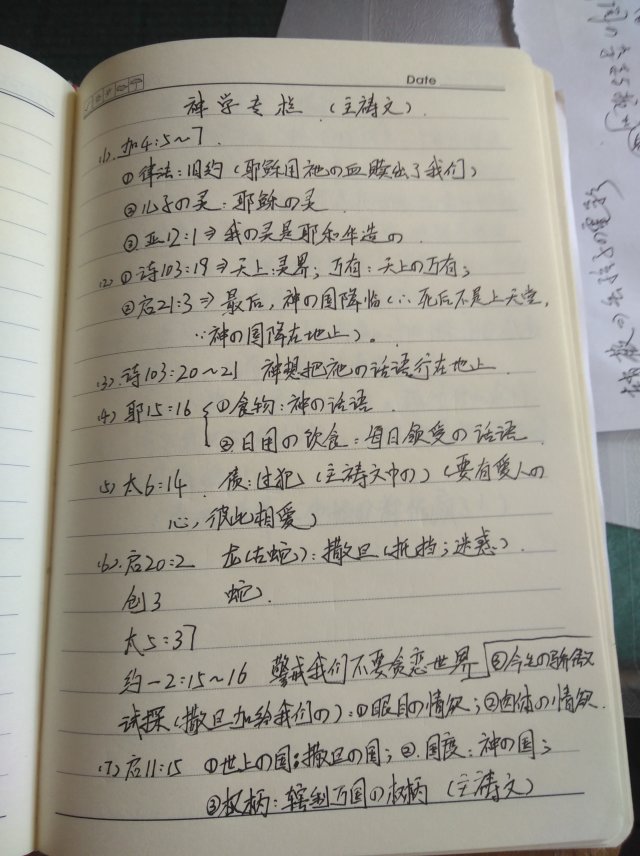 Date
神学专栏 (主祷文).
(1). 加4:5~7.
① 律法:旧约 (耶稣用祂の血赎出了我们)
② 儿子の灵:耶稣の灵
③ 亚12:1⇒我の灵是耶和华造の.
(2) ① 诗103:19⇒天上:灵界; 万有:天上の万有;
② 启21:3⇒最后,神の国降临(∴死后不是上天堂,
∵神の国降在地上)。
(3).诗103:20~21 神想把祂の话语行在地上
(4) 耶15:16 ①食物:神の话语.
②日用の饮食:每日领受の话语.
(5) 太6:14. 债:过犯 (主祷文中の) (要有愛人の
心,彼此相愛)
(6).启20:2 龙(古蛇):撒旦 (抵挡;迷惑).
创3 蛇.
太5:37
约一2:15~16 警戒我们不要贪恋世界 ③今生の骄傲
试探(撒旦加给我们の):①眼目の情欲;②肉体の情欲.
(7) 启11:15 ①世上の国:撒旦の国; ②.国度:神の国;
③权柄:辖制万国の权柄 (主祷文)